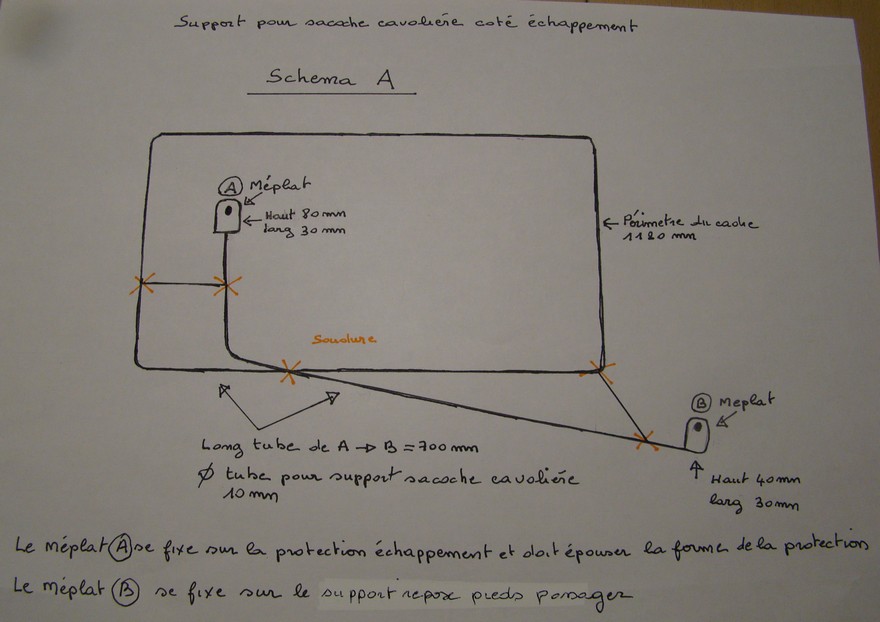 Support pour sacoche cavolière coté échappement
Schema A
A Méplat
Haut 80 mm
larg 30 mm
Périmetre du cache
1180 mm
Soudure
B Meplat
Long tube de A → B = 700 mm
Ø tube pour support sacoche cavolière
10 mm
Haut 40 mm
larg 30 mm
Le méplat A se fixe sur la protection échappement et doit épouser la forme de la protection
Le méplat B se fixe sur le support repose pieds passager